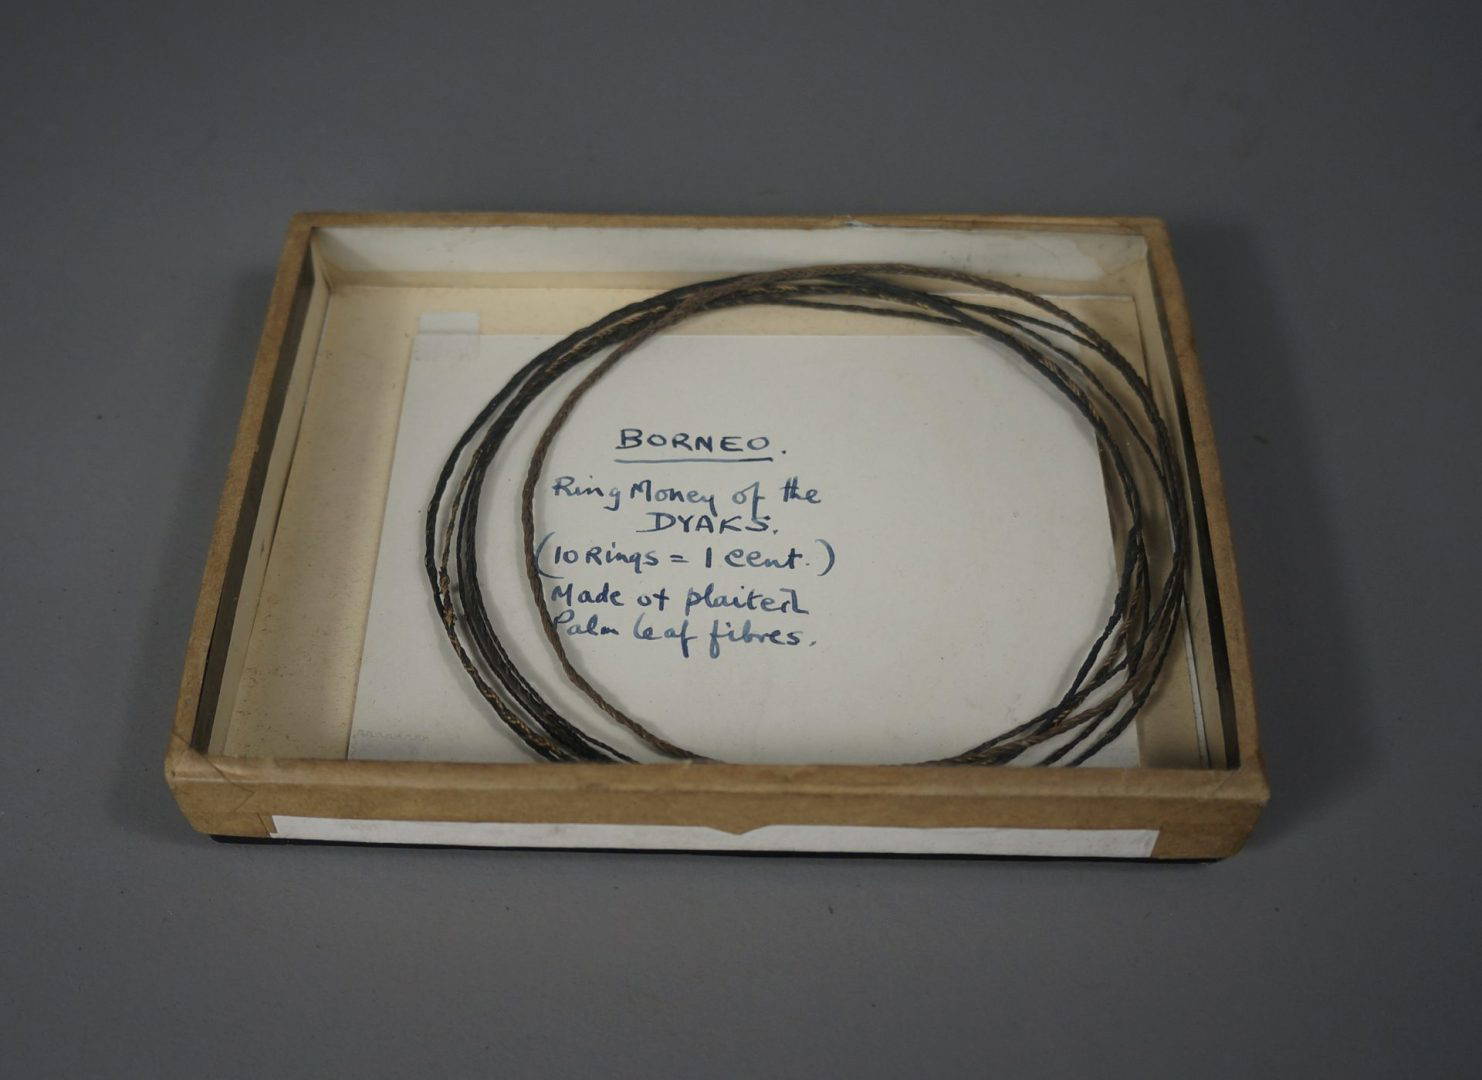 BORNEO.
Ring Money of the
DYAKS.
(10 Rings = 1 cent.)
Made of plaited
Palm leaf fibres.